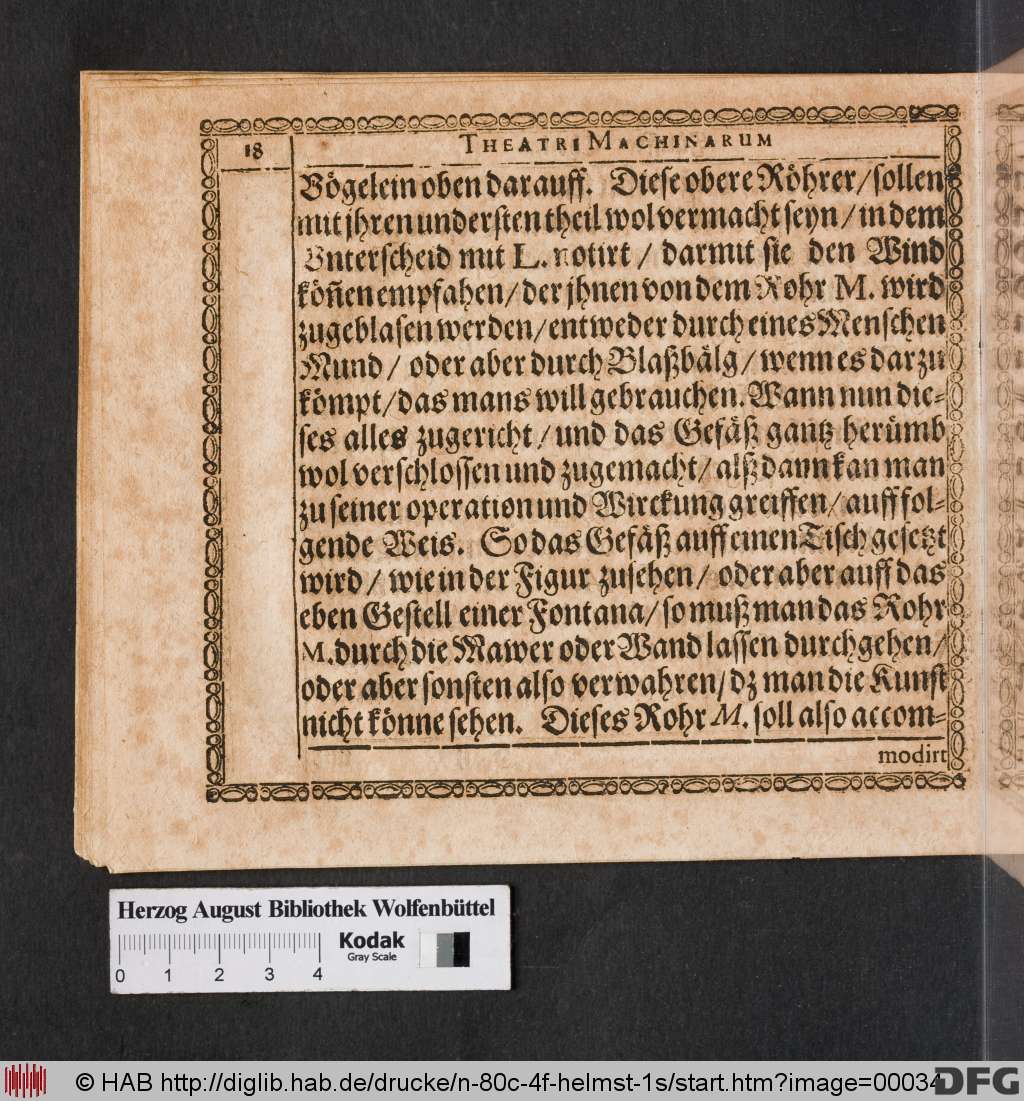 18
THEATRI MACHINARUM
Vögelein oben darauff. Diese obere Röhrer/ sollen
mit jhren understen theil wol vermacht seyn/ in dem
Vnterscheid mit L. notirt / darmit sie den Wind
köñen empfahen/ der jhnen von dem Rohr M. wird
zugeblasen werden/ entweder durch eines Menschen
Mund/ oder aber durch Blaßbälg/ wenn es darzu
kömpt/ das mans will gebrauchen. Wann nun die-
ses alles zugericht/ und das Gefäß gantz herümb
wol verschlossen und zugemacht/ alß dann kan man
zu seiner operation und Wirckung greiffen/ auff fol-
gende Weis. So das Gefäß auff einen Tisch gesetzt
wird/ wie in der Figur zusehen/ oder aber auff das
eben Gestell einer Fontana/ so muß man das Rohr
M. durch die Mawer oder Wand lassen durchgehen/
oder aber sonsten also verwahren/ dz man die Kunst
nicht könne sehen. Dieses Rohr M. soll also accom-
modirt
Herzog August Bibliothek Wolfenbüttel
Kodak
Gray Scale
0 1 2 3 4
© HAB http://diglib.hab.de/drucke/n-80c-4f-helmst-1s/start.htm?image=00034
DFG